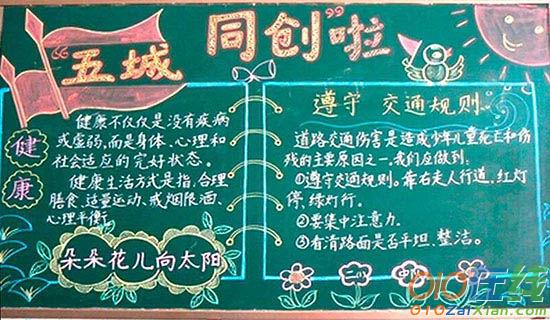 “五城同创”啦
健康
健康不仅仅是没有疾病
或虚弱,而是身体、心理和
社会适应的完好状态。
健康生活方式是指,合理
膳食、适量运动、戒烟限酒、
心理平衡。
朵朵花儿向太阳
遵守 交通规则。
道路交通伤害是造成少年儿童死亡和伤
残的主要原因之一,我们应做到:
①遵守交通规则。靠右走人行道,红灯
停,绿灯行。
②要集中注意力.
③看清路面是否平坦、整洁。
二小
010在线
010zaixian.com